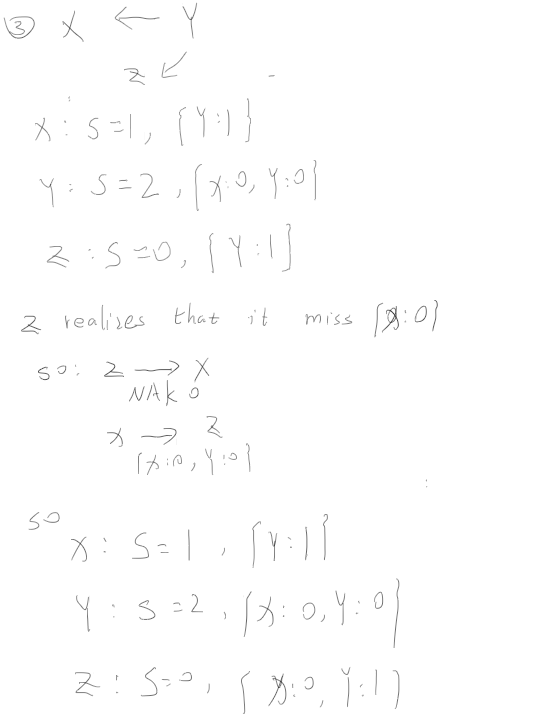 ③ X ← Y
Z ↙
X : S=1, {Y:1}
Y : S=2, {X:0, Y:0}
Z : S=0, {Y:1}
Z realizes that it miss {X:0}
so: Z → X
NAK 0
X → Z
{X:0, Y:0}
so
X : S=1, {Y:1}
Y : S=2, {X:0, Y:0}
Z : S=0, {X:0, Y:1}